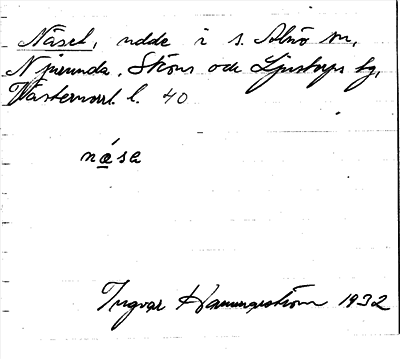 Näset, udde i s. Alnö sn,
Njurunda, Sköns och Ljustorps tg,
Västernorrl. l. 40
näse
Ingvar Hammarström 1932